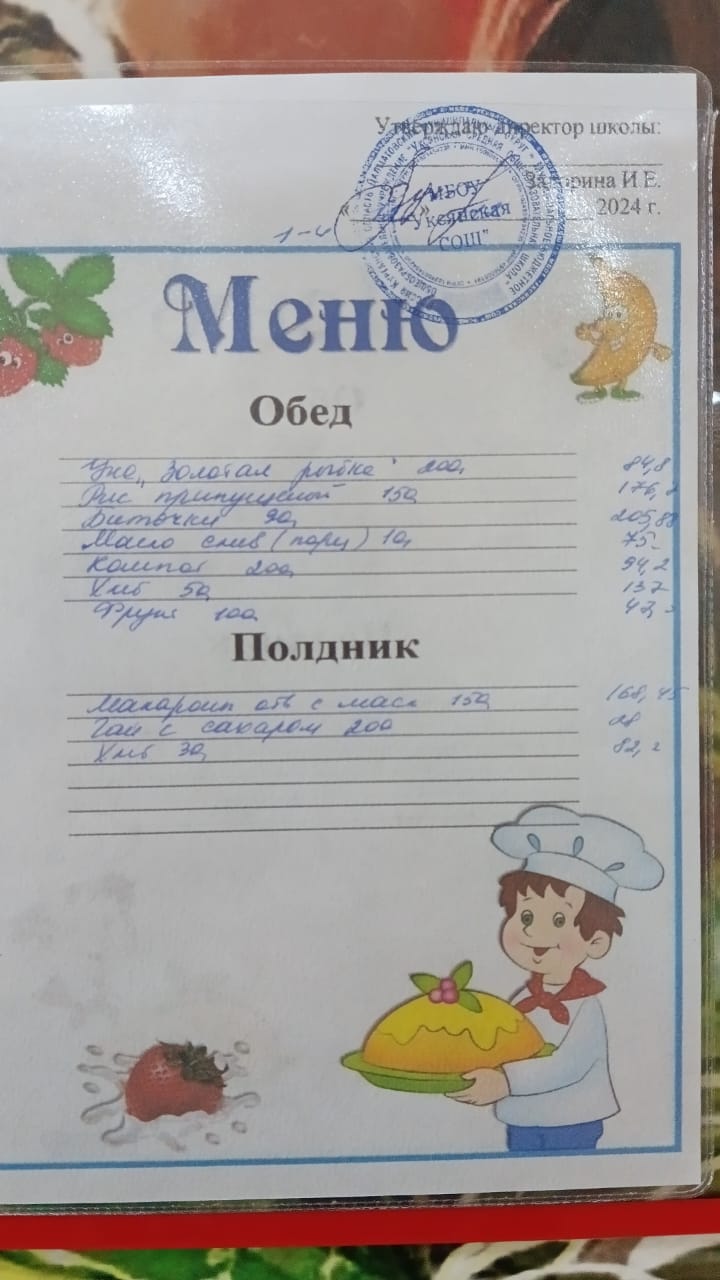 Утверждаю директор школы:
Запорина И.Е.
2024 г.
МБОУ
"Уксянская
СОШ"
1-4
Меню
Обед
Уха „Золотая рыбка" 200 84,8
Рис припущеной 150
Биточки 90 205,88
Масло слив (порц) 10 75
Компот 200 94,2
Хлб 50 137
Фрукт 100
Полдник
Макароны отв с масл 150 168,45
Чай с сахаром 200 28
Хлб 30 82,2